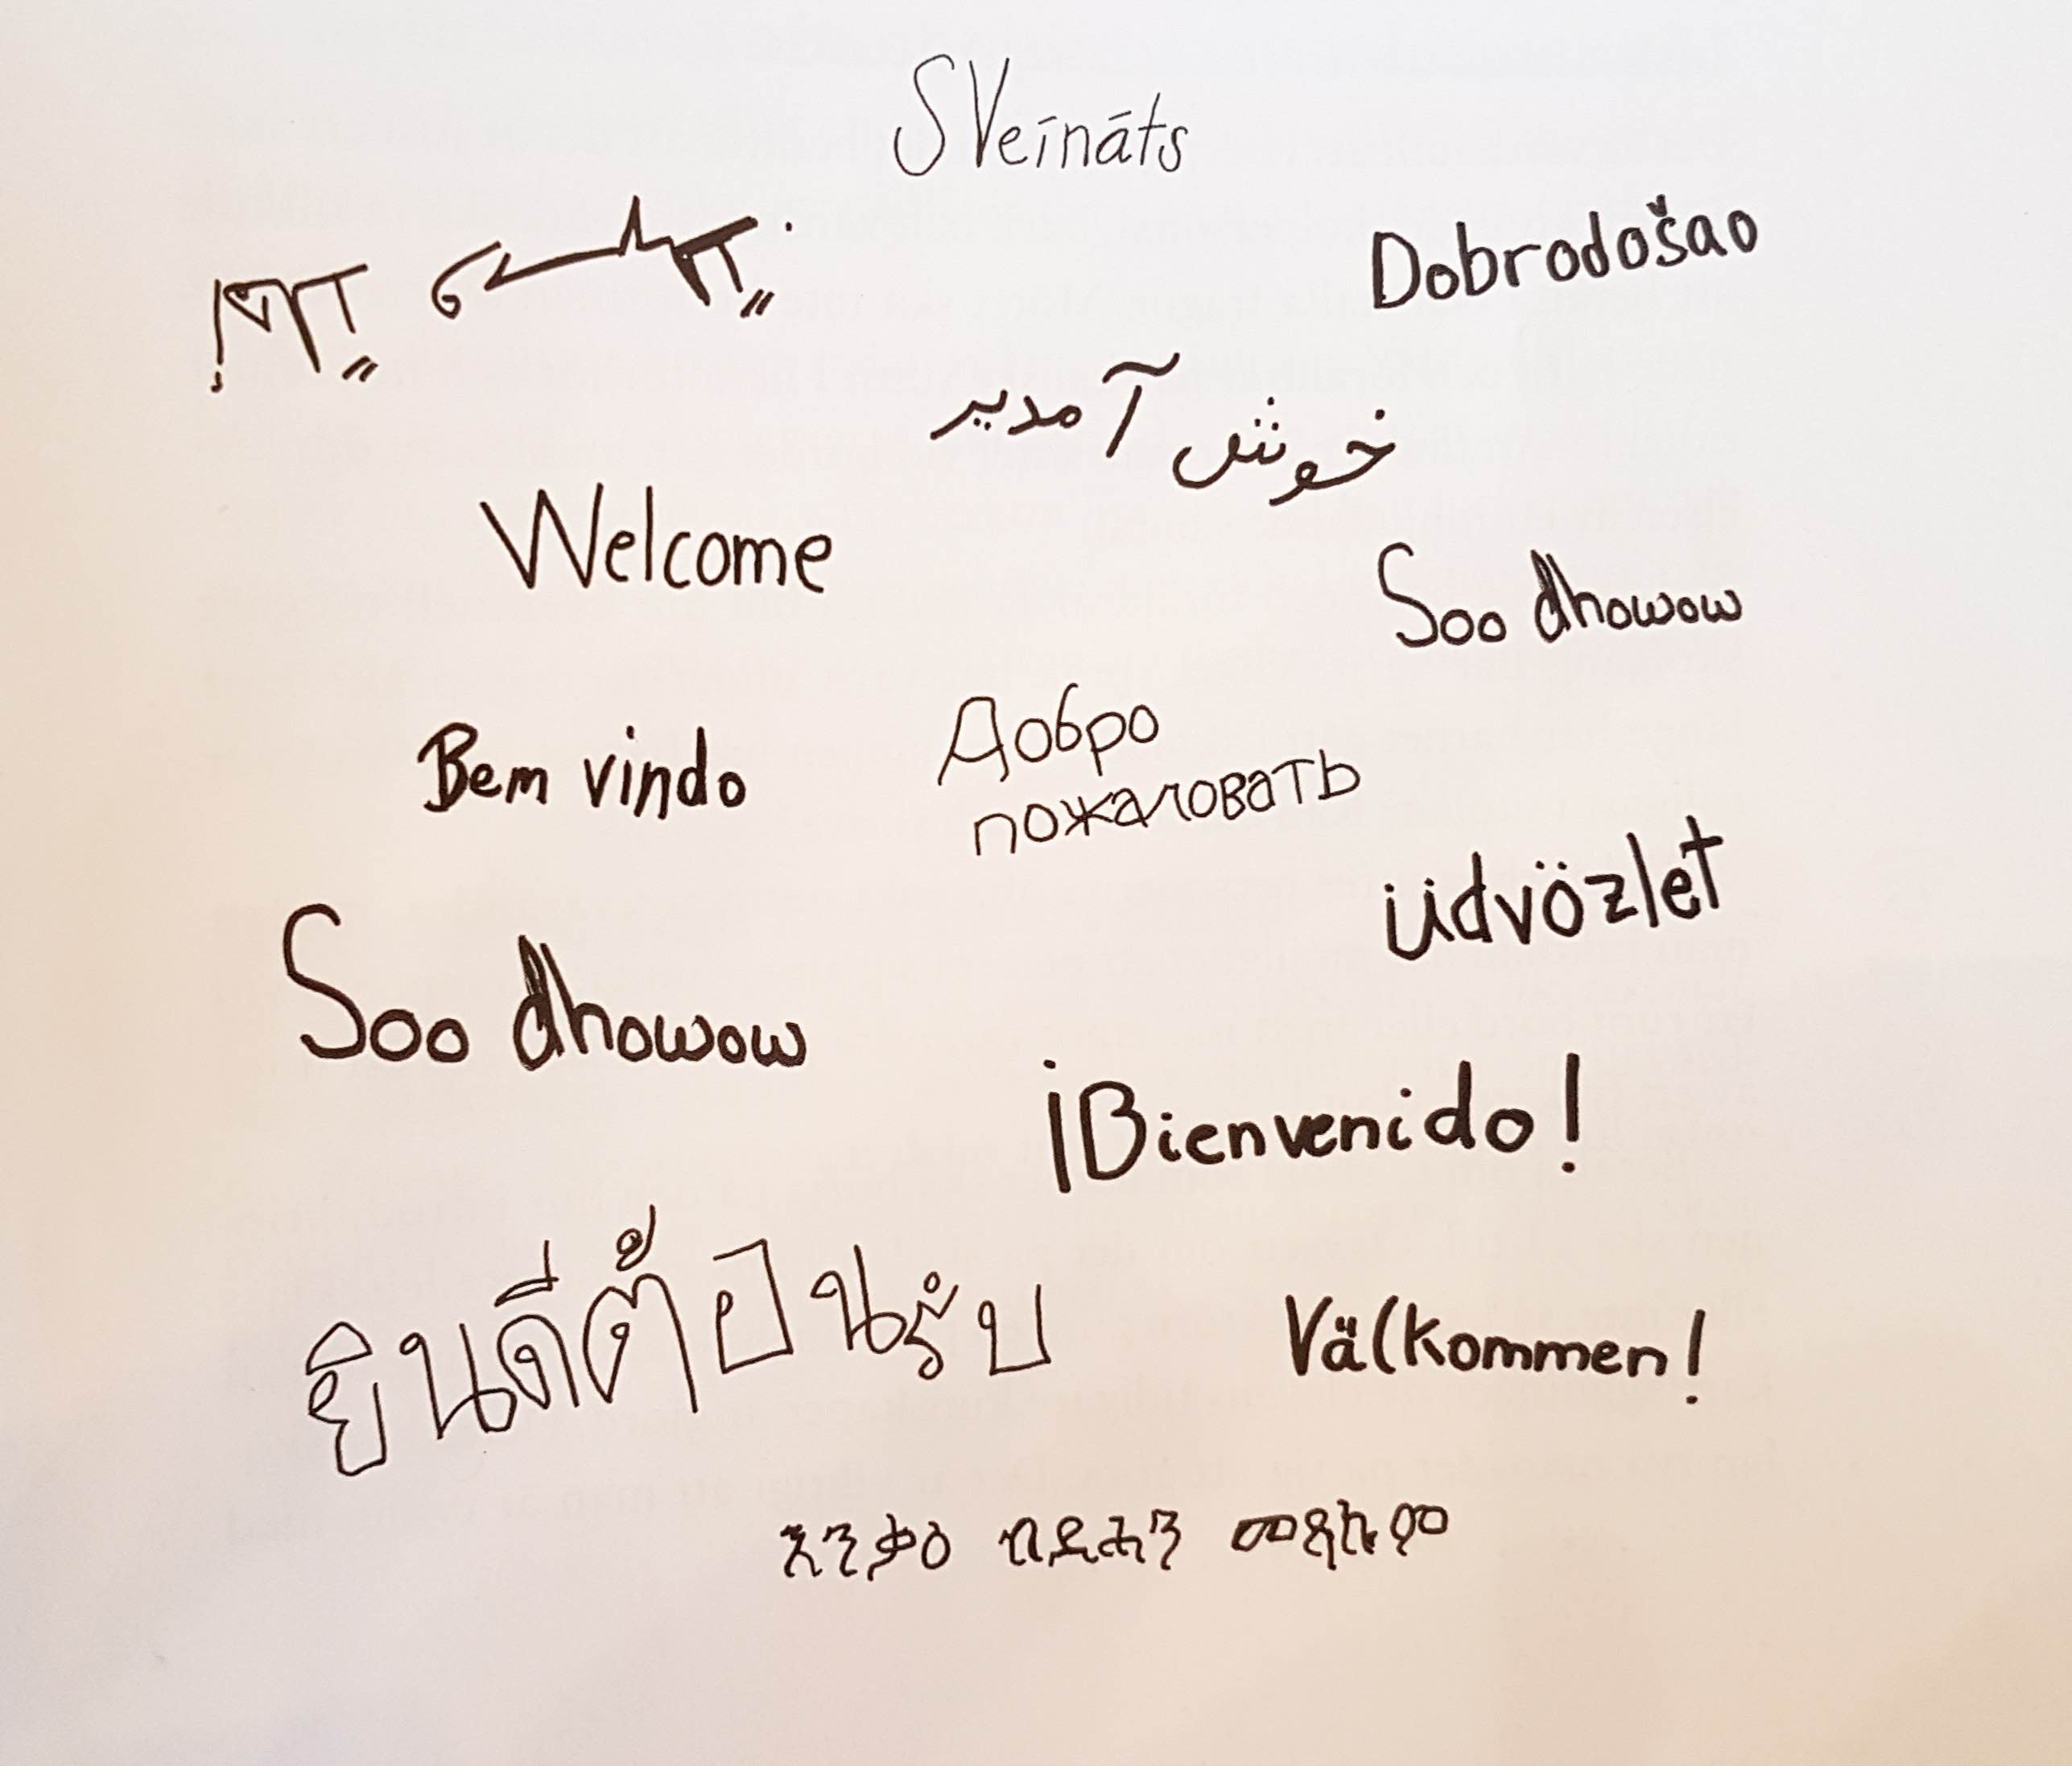 SVeīnāts
Dobrodošao
خوش آمدير
Welcome
Soo dhowow
Bem vindo
Добро
пожаловать
üdvözlet
Soo dhowow
¡Bienvenido!
ยินดีต้อนรับ
Välkommen!
እንቃዕ ብደሓን መጻኩም